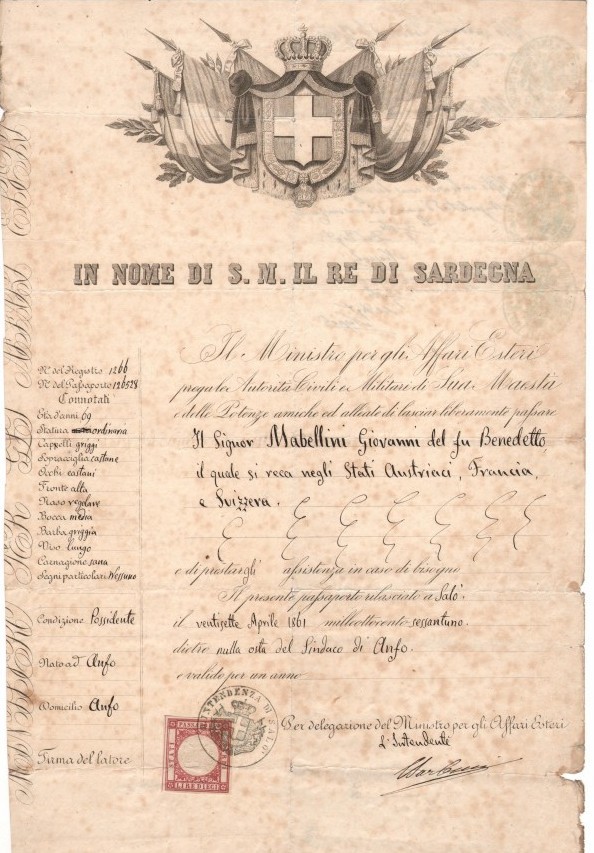 IN NOME DI S. M. IL RE DI SARDEGNA
Il Ministro per gli Affari Esteri
prega le Autorità Civili e Militari di Sua Maestà
e delle Potenze amiche ed alleate di lasciar liberamente passare
Il Signor Mabellini Giovanni del fu Benedetto
il quale si reca negli Stati Austriaci, Francia,
e Svizzera.
e di prestargli assistenza in caso di bisogno
Il presente passaporto rilasciato a Salò
il ventisette Aprile 1861 milleottocento sessantuno.
dietro nulla osta del Sindaco di Anfo.
e valido per un anno
Per delegazione del Ministro per gli Affari Esteri
L'Intendente
N° del Registro 1266
N° del Passaporto 126528
Connotati
Età d'anni 69
Statura ordinaria
Capelli griggi
Sopracciglia castane
Occhi castani
Fronte alta
Naso regolare
Bocca media
Barba griggia
Viso lungo
Carnagione sana
Segni particolari Nessuno
Condizione Possidente
Nato ad Anfo
Domicilio Anfo
Firma del latore
INTENDENZA DI SALÒ
STATI
LIRE DIECI